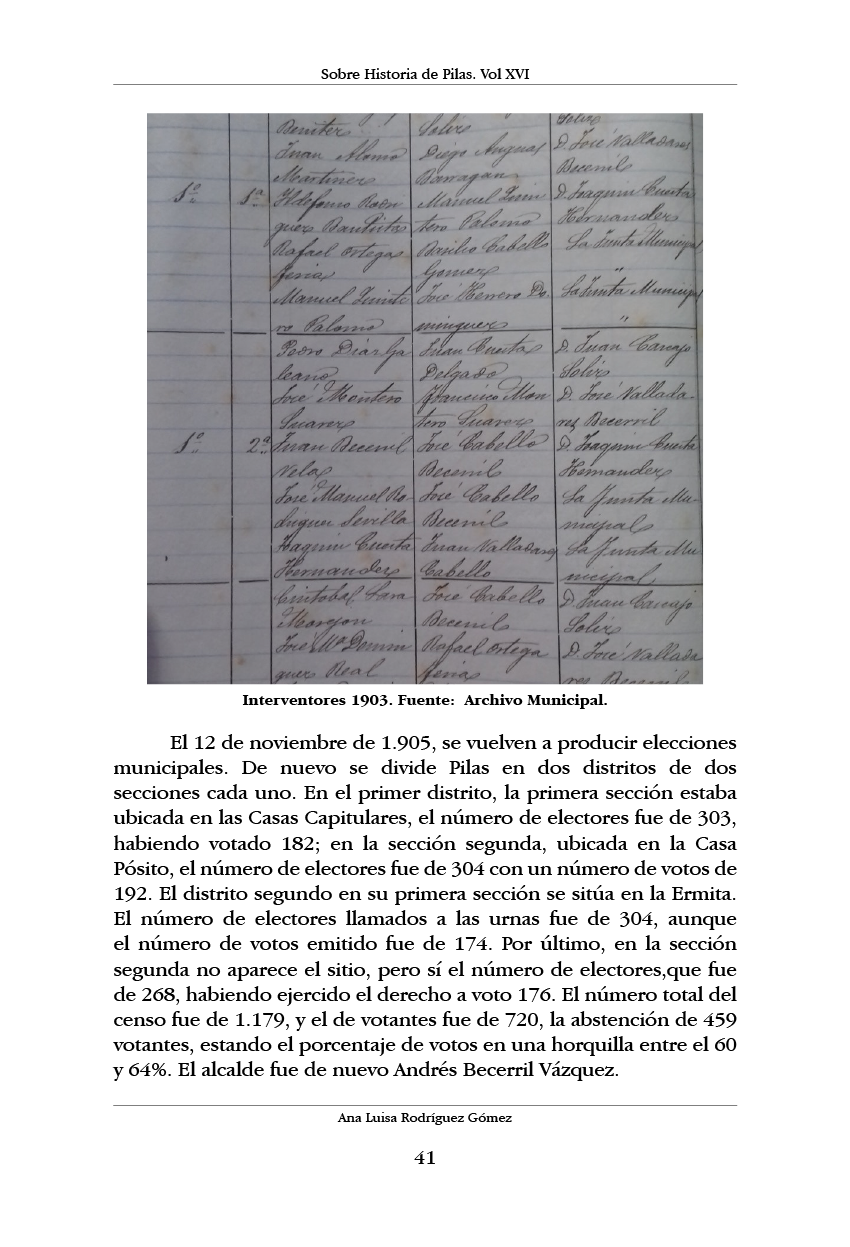 Sobre Historia de Pilas. Vol XVI
Benitez Solis Solis
Juan Alonso Diego Anguas D. José Valladares
Martinez Barragan Becerril
1º 1ª Ildefonso Rodri Manuel Quin D. Joaquin Cuesta
guez Bautista tero Palomo Hernandez
Rafael Ortega Basilio Cabello La Junta Municipal
feria Gomez "
Manuel Quinte José Herrero Do- La Junta Municipal
ro Palomo minguez "
Pedro Diaz Ga Juan Cuesta D. Juan Carrajo
leano Delgado Solis
José Montero Francisco Mon D. José Vallada-
Suarez tero Suarez res Becerril
1º 2ª Juan Becerril José Cabello D. Joaquin Cuesta
Vela Becerril Hernandez
José Manuel Ro- José Cabello La Junta Mu-
driguez Sevilla Becerril nicipal
Joaquin Cuesta Juan Valladares La Junta Mu
Hernandez Cabello nicipal
Cristobal Lara José Cabello D. Juan Carrajo
Morejon Becerril Solis
José Mª Domin Rafael Ortega D. José Vallada
guez Real feria res Becerril
Interventores 1903. Fuente: Archivo Municipal.
El 12 de noviembre de 1.905, se vuelven a producir elecciones
municipales. De nuevo se divide Pilas en dos distritos de dos
secciones cada uno. En el primer distrito, la primera sección estaba
ubicada en las Casas Capitulares, el número de electores fue de 303,
habiendo votado 182; en la sección segunda, ubicada en la Casa
Pósito, el número de electores fue de 304 con un número de votos de
192. El distrito segundo en su primera sección se sitúa en la Ermita.
El número de electores llamados a las urnas fue de 304, aunque
el número de votos emitido fue de 174. Por último, en la sección
segunda no aparece el sitio, pero sí el número de electores,que fue
de 268, habiendo ejercido el derecho a voto 176. El número total del
censo fue de 1.179, y el de votantes fue de 720, la abstención de 459
votantes, estando el porcentaje de votos en una horquilla entre el 60
y 64%. El alcalde fue de nuevo Andrés Becerril Vázquez.
Ana Luisa Rodríguez Gómez
41